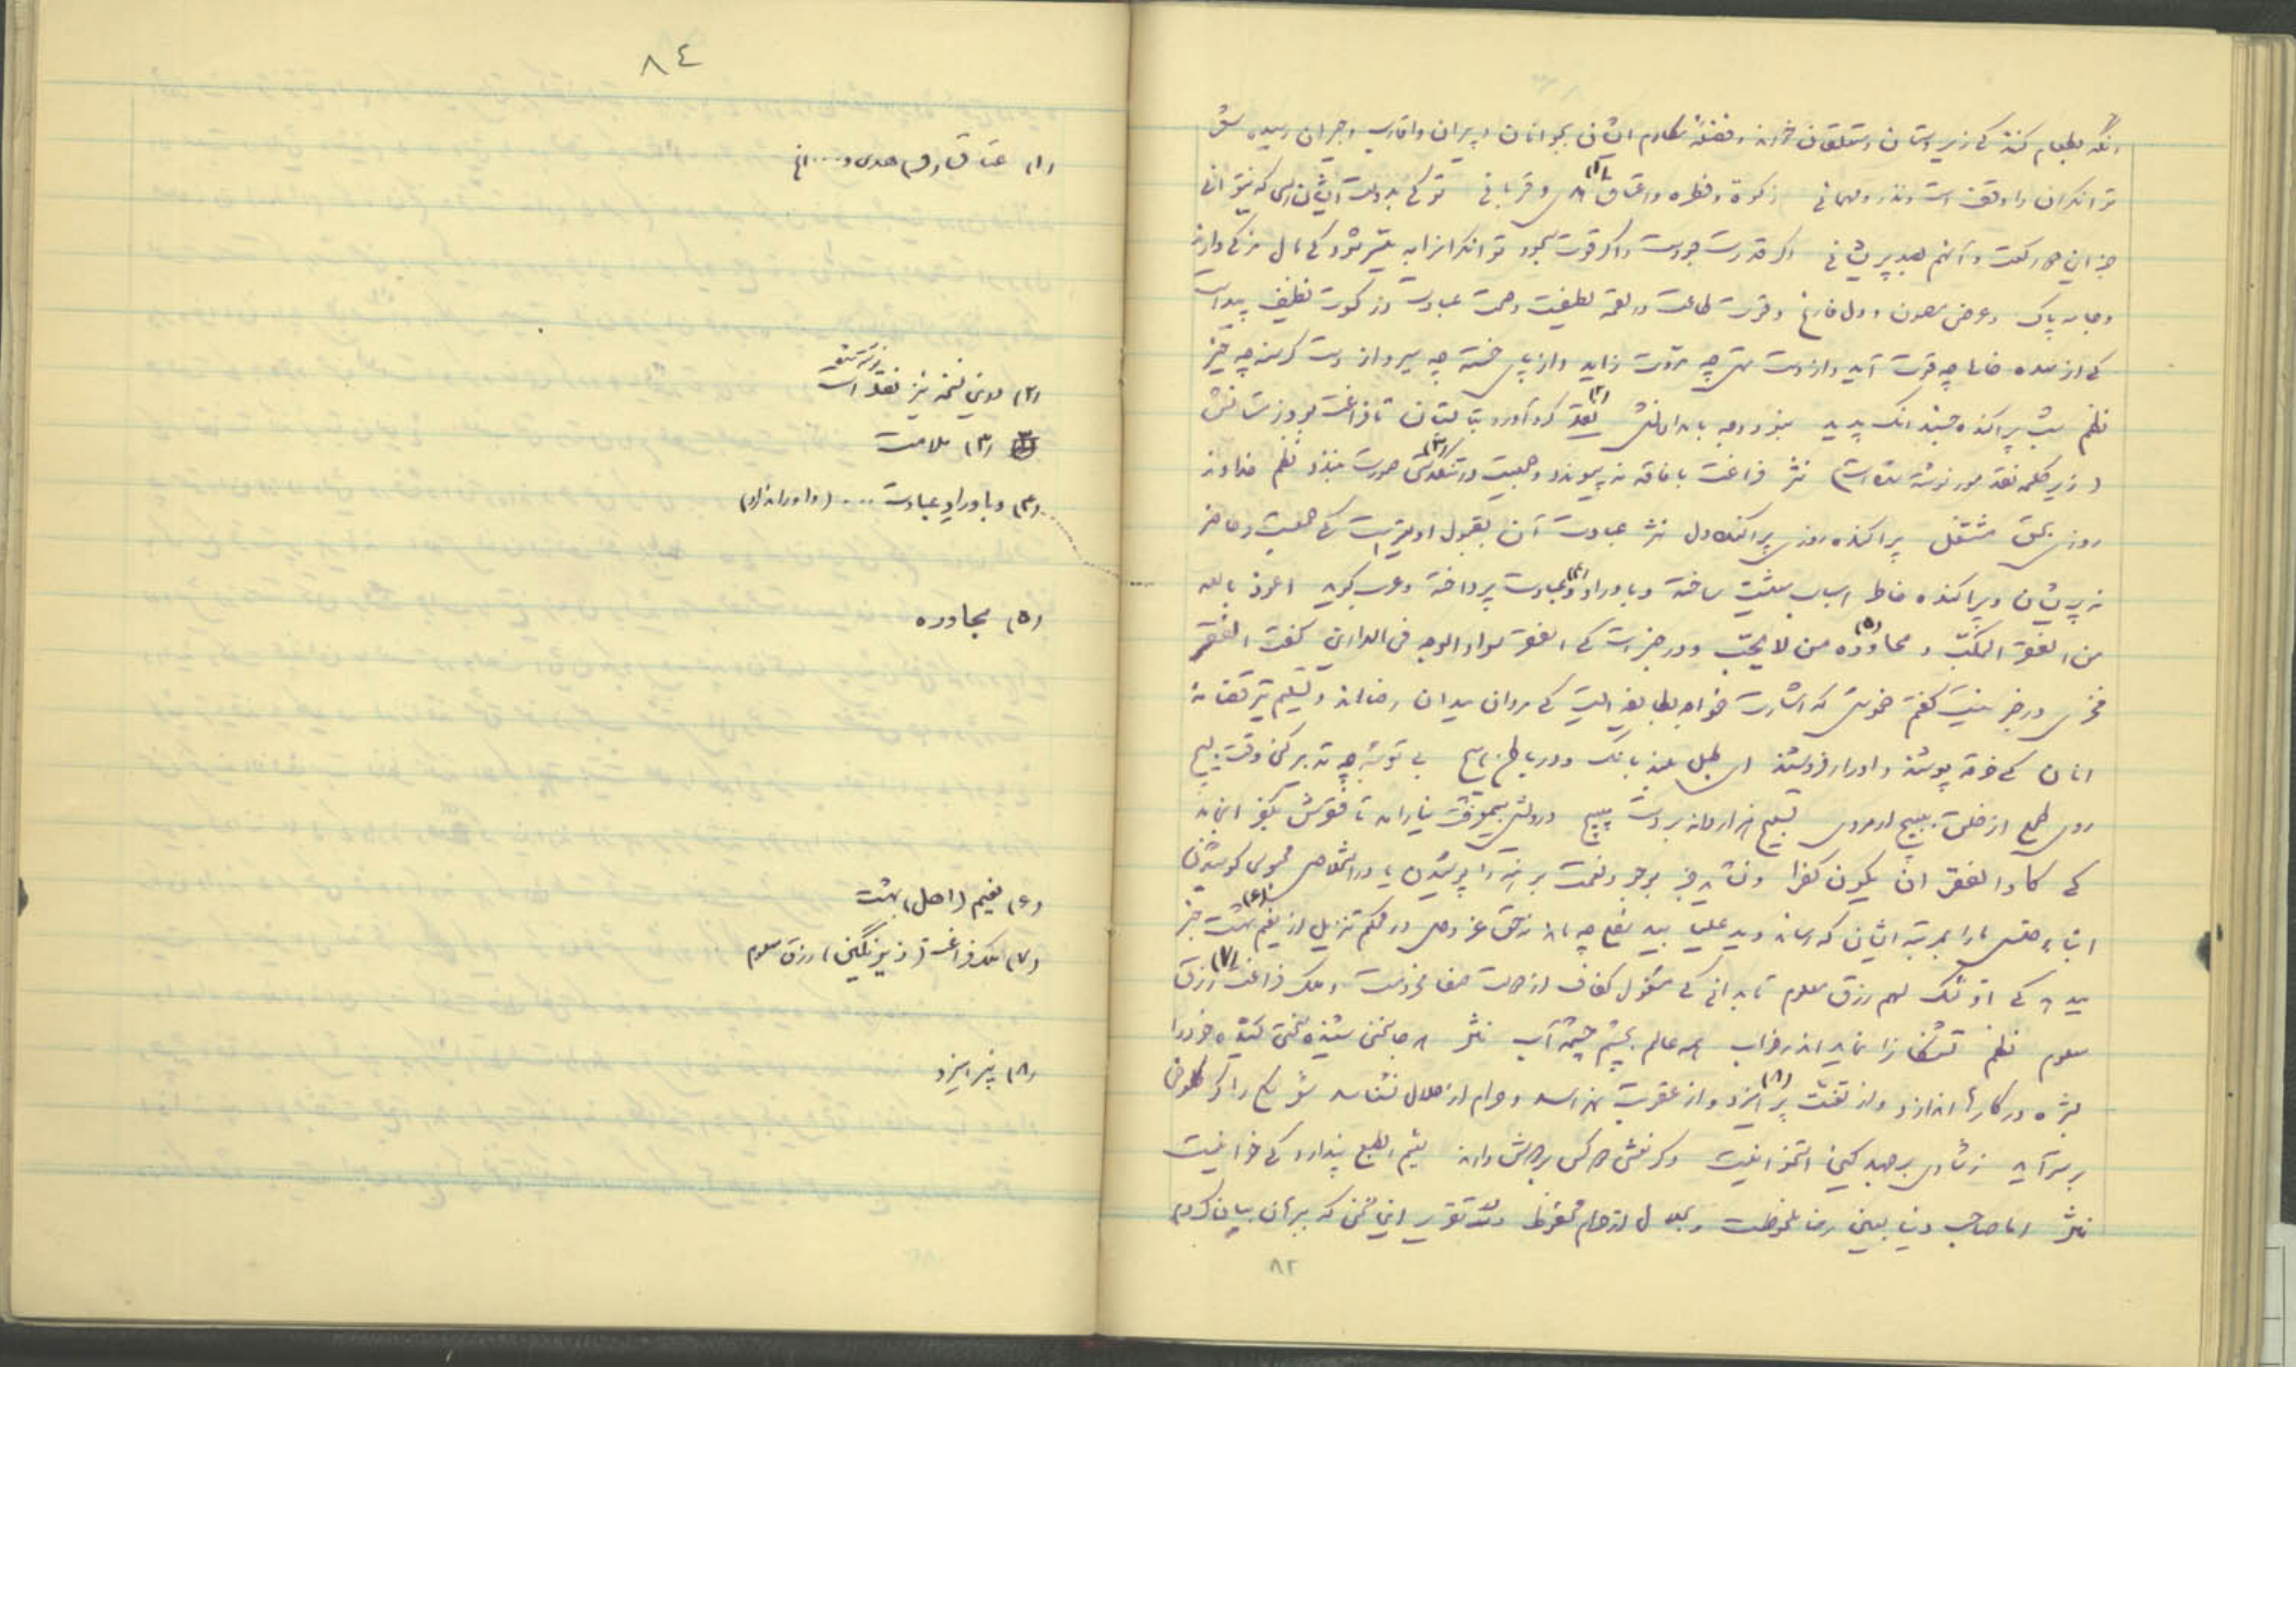 آنگه بطعام کنند کی زیردستان و متعلقان خورند و فضلهٔ مکارم ایشان بجوانان و پیران و اقارب و جیران رسیده شعر
توانگران را وقف است و نذر و مهمانی زکوة و فطره و اعتاق (۱) و قربانی تو کی بدولت ایشان رسی که نتوانی
جز این دو رکعت و آنهم بصد پریشانی اگر قدرت جودست و اگر قوت سجود توانگرانرا به میسر شود کی مال مزکی دارند
و جامه پاک و عرض مصون و دل فارغ و قوت طاعت در لقمه لطیفست و صحت عبادت در کسوت نظیف پیداست
کی از معده خالی چه قوت آید و از دست تهی چه مروت زاید و از پای خسته چه سیر و از دست گرسنه چه خیز
نظم شب پراکنده خسبد آنک پدید نبود وجه بامدادانش نقد (۲) گرد آورد بتابستان تا فراغت بود زمستانش
(زیر کلمه نقد مور نوشته شده است) نثر فراغت با فاقه نه پیوندد و جمعیت در تنگدستی (۳) صورت نبندد نظم خداوند
روزی بحق مشتغل پراکنده روزی پراکنده دل نثر عبادت آن بقبول اولیترست کی جمعیت و حاضر
نه پریشان و پراکنده خاطر اسباب معیشت ساخته و باوراد و (۴) عبادت پرداخته و عرب گوید اعوذ بالله
من الفقر المکب و محاوده (۵) من لا یحب و در خبرست کی الفقر سواد الوجه فی الدارین گفت الفقر
فخری در خبر نیست گفتم خموش که اشارت خواجه بطایفه ایست کی مردان میدان رضااند و تسلیم تیر قضا نه
انان کی خرقه پوشند و ادرار فروشند ای طبل بلند بانگ و در باطن هیچ بی توشه چه تدبیر کنی وقت بسیج
روی طمع از خلق بپیچ ار مردی تسبیح هزار دانه بر دست مپیچ درویش بیمعرفت نیارامد تا فقرش بکفر انجامد
کی کاد الفقر ان یکون کفرا و نشاید جز بوجود نعمت برهنه را پوشیدن یا در استخلاص محبوسی کوشیدن
ابناء جنس ما را بمرتبه ایشان که رساند و ید علیا بید سفلی چه ماند نه حق عز وجل در محکم تنزیل از نعیم بهشت (۶) خبر
میدهد کی اولئک لهم رزق معلوم تا بدانی کی مشغول کفاف از دولت عفاف محرومست و ملک فراغت رزق (۷)
معلوم نظم تشنگانرا نماید اندر خواب همه عالم بچشم چشمه آب نثر هر جا سختی ستیزه تلخی کشیده خود را
بشره در کارها اندازد و از تبعت پر (۸) ایزد و از عقوبت نهراسد و حرام از حلال نشناسد شعر سگ را گر کلوخی
بر سر آید ز شادی بر جهد کین استخوانیست و گر نعشی دو کس بر دوش دارند لئیم الطبع پندارد کی خوانیست
نثر اما صاحب دنیا بعین رضا ملحوظست و بحلال از حرام محفوظ و بعد تقریر این سخن که برهان بیان کردم
۸۲
۸٤
(۱) عتاق و هدی و .... الخ
(۲) در این نسخه نیز نقد است زیرش مور
(۳) ملامت
(۴) و باوراد عبادت .... (واو ندارد)
(۵) مجاوره
(۶) نعیم (اهل) بهشت
(۷) ملک فراغت (زیر نگین) رزق معلوم
(۸) پرهیزد